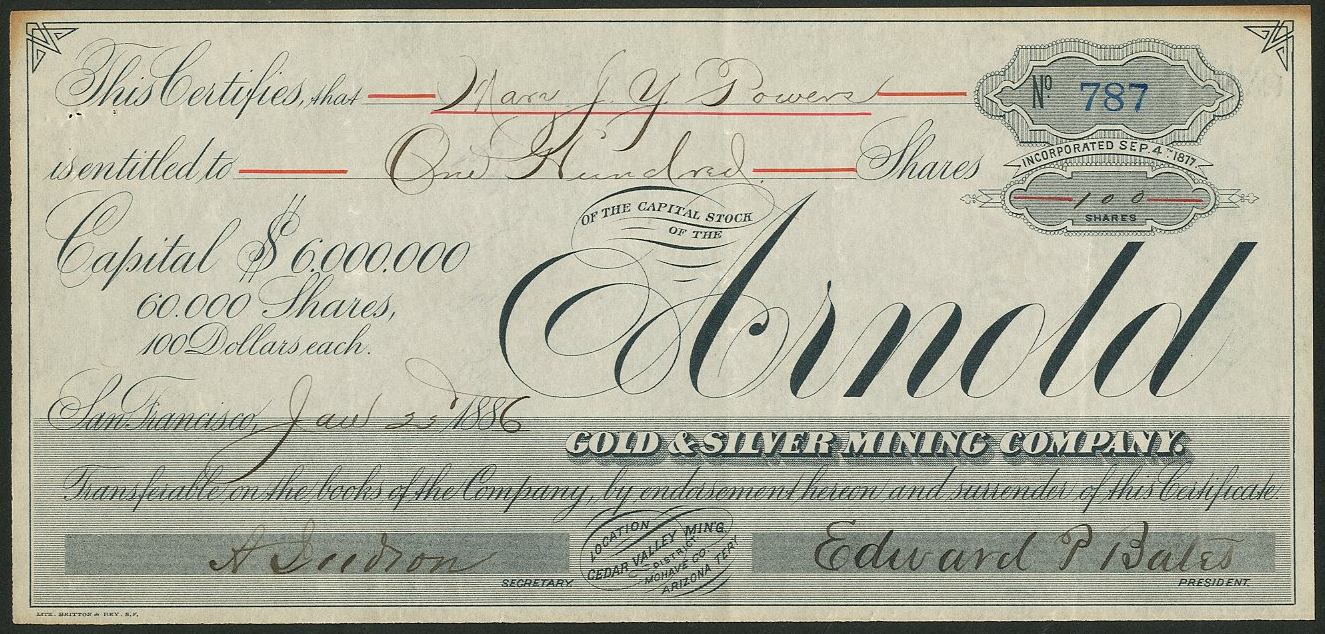 This Certifies, that Mary J. Y Powers
No 787
is entitled to One Hundred Shares
INCORPORATED SEP. 4. 1877
100
SHARES
OF THE CAPITAL STOCK
OF THE
Capital $6.000.000
60.000 Shares,
100 Dollars each.
Arnold
San Francisco, Jan 22d 1886
GOLD & SILVER MINING COMPANY.
Transferable on the books of the Company, by endorsement hereon and surrender of this Certificate.
A Judson
SECRETARY.
LOCATION
CEDAR VALLEY MING.
DISTRICT
MOHAVE CO.
ARIZONA TERY
Edward P Bates
PRESIDENT.
LITH. BRITTON & REY. S.F.